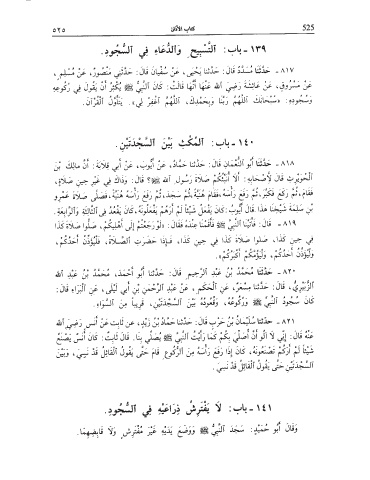 ٥٢٥ كتاب الأذان 525
١٣٩ - باب: التَّسْبِيحِ وَالدُّعَاءِ فِي السُّجُودِ.
٨١٧ - حَدَّثَنَا مُسَدَّدٌ قَالَ: حَدَّثَنَا يَحْيَى، عَنْ سُفْيَانَ قَالَ: حَدَّثَنِي مَنْصُورٌ، عَنْ مُسْلِمٍ،
عَنْ مَسْرُوقٍ، عَنْ عَائِشَةَ رَضِيَ اللهُ عَنْهَا أَنَّهَا قَالَتْ: كَانَ النَّبِيُّ ﷺ يُكْثِرُ أَنْ يَقُولَ فِي رُكُوعِهِ
وَسُجُودِهِ: «سُبْحَانَكَ اللَّهُمَّ رَبَّنَا وَبِحَمْدِكَ، اللَّهُمَّ اغْفِرْ لِي». يَتَأَوَّلُ الْقُرْآنَ.
١٤٠ - باب: الْمُكْثِ بَيْنَ السَّجْدَتَيْنِ.
٨١٨ - حَدَّثَنَا أَبُو النُّعْمَانِ قَالَ: حَدَّثَنَا حَمَّادٌ، عَنْ أَيُّوبَ، عَنْ أَبِي قِلَابَةَ: أَنَّ مَالِكَ بْنَ
الْحُوَيْرِثِ قَالَ لِأَصْحَابِهِ: أَلَا أُنَبِّئُكُمْ صَلَاةَ رَسُولِ اللهِ ﷺ؟ قَالَ: وَذَاكَ فِي غَيْرِ حِينِ صَلَاةٍ،
فَقَامَ، ثُمَّ رَكَعَ فَكَبَّرَ، ثُمَّ رَفَعَ رَأْسَهُ، فَقَامَ هُنَيَّةً، ثُمَّ سَجَدَ، ثُمَّ رَفَعَ رَأْسَهُ هُنَيَّةً، فَصَلَّى صَلَاةَ عَمْرِو
بْنِ سَلِمَةَ شَيْخِنَا هَذَا. قَالَ أَيُّوبُ: كَانَ يَفْعَلُ شَيْئًا لَمْ أَرَهُمْ يَفْعَلُونَهُ، كَانَ يَقْعُدُ فِي الثَّالِثَةِ وَالرَّابِعَةِ.
٨١٩ - قَالَ: فَأَتَيْنَا النَّبِيَّ ﷺ فَأَقَمْنَا عِنْدَهُ فَقَالَ: «لَوْ رَجَعْتُمْ إِلَى أَهْلِيكُمْ، صَلُّوا صَلَاةَ كَذَا
فِي حِينِ كَذَا، صَلُّوا صَلَاةَ كَذَا فِي حِينِ كَذَا، فَإِذَا حَضَرَتِ الصَّلَاةُ، فَلْيُؤَذِّنْ أَحَدُكُمْ،
وَلْيَؤُمَّكُمْ أَكْبَرُكُمْ».
٨٢٠ - حَدَّثَنَا مُحَمَّدُ بْنُ عَبْدِ الرَّحِيمِ قَالَ: حَدَّثَنَا أَبُو أَحْمَدَ، مُحَمَّدُ بْنُ عَبْدِ اللهِ
الزُّبَيْرِيُّ، قَالَ: حَدَّثَنَا مِسْعَرٌ، عَنِ الْحَكَمِ، عَنْ عَبْدِ الرَّحْمَنِ بْنِ أَبِي لَيْلَى، عَنِ الْبَرَاءِ قَالَ:
كَانَ سُجُودُ النَّبِيِّ ﷺ وَرُكُوعُهُ، وَقُعُودُهُ بَيْنَ السَّجْدَتَيْنِ، قَرِيبًا مِنَ السَّوَاءِ.
٨٢١ - حَدَّثَنَا سُلَيْمَانُ بْنُ حَرْبٍ قَالَ: حَدَّثَنَا حَمَّادُ بْنُ زَيْدٍ، عَنْ ثَابِتٍ عَنْ أَنَسٍ رَضِيَ اللهُ
عَنْهُ قَالَ: إِنِّي لَا آلُو أَنْ أُصَلِّيَ بِكُمْ كَمَا رَأَيْتُ النَّبِيَّ ﷺ يُصَلِّي بِنَا. قَالَ ثَابِتٌ: كَانَ أَنَسٌ يَصْنَعُ
شَيْئًا لَمْ أَرَكُمْ تَصْنَعُونَهُ، كَانَ إِذَا رَفَعَ رَأْسَهُ مِنَ الرُّكُوعِ قَامَ حَتَّى يَقُولَ الْقَائِلُ قَدْ نَسِيَ، وَبَيْنَ
السَّجْدَتَيْنِ حَتَّى يَقُولَ الْقَائِلُ قَدْ نَسِيَ.
١٤١ - باب: لَا يَفْتَرِشُ ذِرَاعَيْهِ فِي السُّجُودِ.
وَقَالَ أَبُو حُمَيْدٍ: سَجَدَ النَّبِيُّ ﷺ وَوَضَعَ يَدَيْهِ غَيْرَ مُفْتَرِشٍ وَلَا قَابِضِهِمَا.